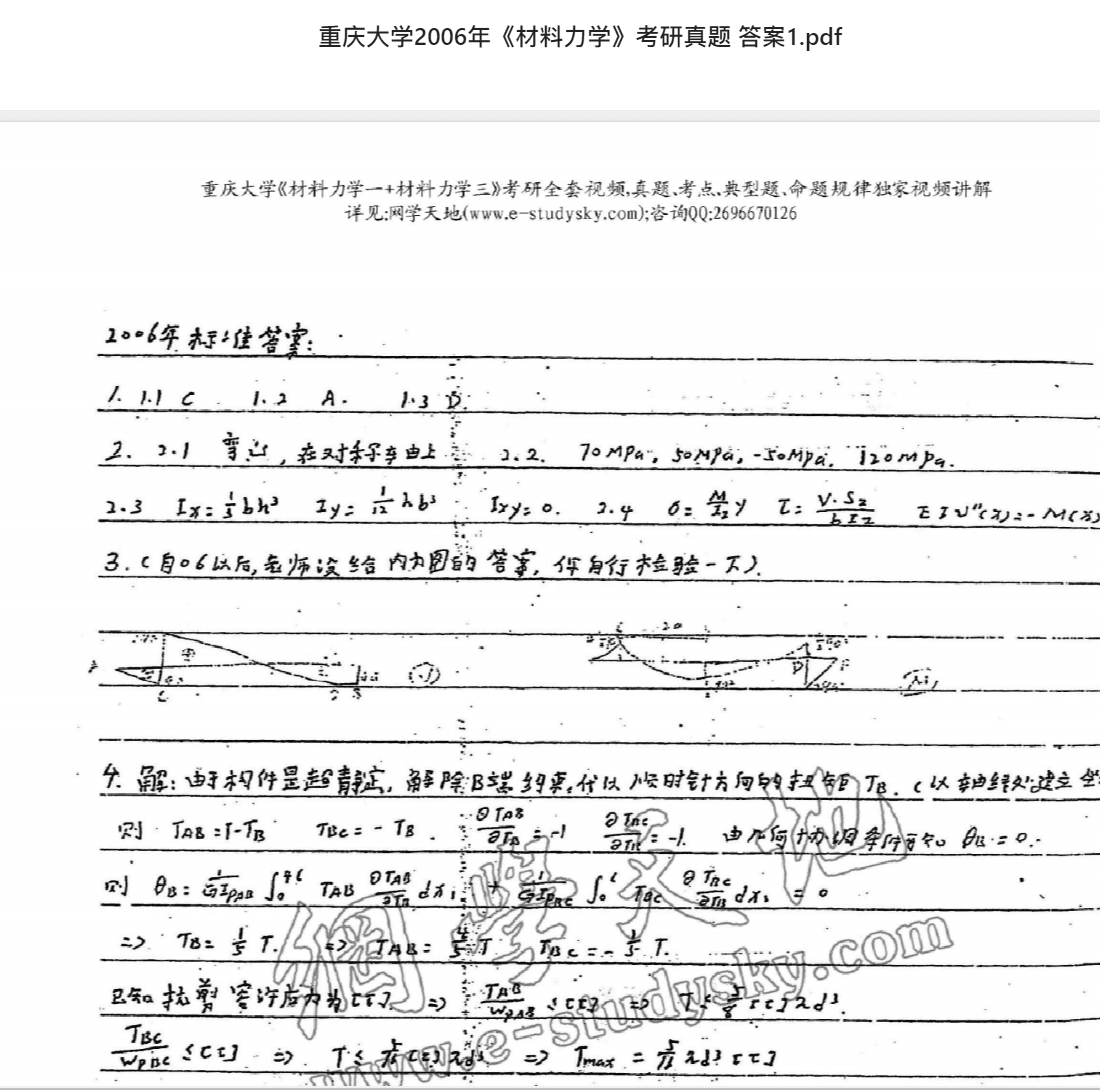 重庆大学2006年《材料力学》考研真题 答案1.pdf
重庆大学《材料力学一+材料力学三》考研全套视频,真题、考点、典型题、命题规律独家视频讲解
详见:网学天地(www.e-studysky.com);咨询QQ:2696670126
2006年标准答案:
1. 1.1 C 1.2 A. 1.3 D.
2. 2.1 弯心, 在对称车由上 2.2. 70MPa, 50MPa, -50MPa, 120MPa.
2.3 Ix=1/3bh³ Iy=1/12hb³ Ixy=0. 2.4 σ=M/Iz y τ=V·Sz/bIz EIv"(x)=-M(x)
3.(自06以后,老师没给内力图的答案,你自行检验一下).
20
4. 解: 由于构件是超静定, 解除B端约束,代以顺时针方向的扭矩TB.(以轴线处建立坐
则 TAB=T-TB TBC=-TB. ∂TAB/∂TB=-1 ∂TBC/∂TB=-1. 由几何协调条件可知 θB=0.
则 θB=1/GIPAB ∫ TAB ∂TAB/∂TB dx1 + 1/GIPBC ∫ TBC ∂TBC/∂TB dx2 = 0
=> TB=1/5 T. => TAB=4/5 T TBC=-1/5 T.
已知抗剪容许应力为[τ] => TAB/WPAB ≤[τ] =>
TBC/WPBC ≤[τ] => => Tmax =
網學天地
www.e-studysky.com